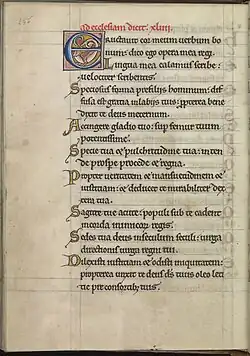 Ad ecclesiam dicit. xliiij.
Eructauit cor meum uerbum bo
num: dico ego opera mea regi.
Lingua mea calamus scribe:
uelociter scribentis.
Speciosus forma pre filiis hominum: dif
fusa est gratia in labiis tuis: propterea bene
dixit te deus in eternum.
Accingere gladio tuo: sup femur tuum
potentissime.
Specie tua et pulchritudine tua: in ten
de prospe procede et regna.
Propter ueritatem et mansuetudinem et
iustitiam: et deducet te mirabiliter dex
tera tua.
Sagitte tue acute: populi sub te cadent
in corda inimicorum regis.
Sedes tua deus in seculum seculi: uirga
directionis uirga regni tui.
Dilexisti iustitiam et odisti iniquitatem:
propterea unxit te deus ds tuus oleo leti
tie pre consortib; tuis.